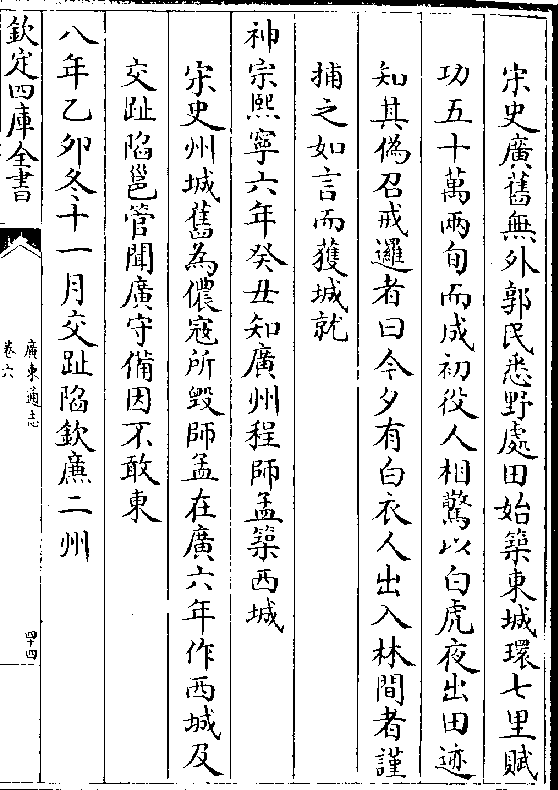 宋史廣舊無外郭民悉野處田始築東城環七里賦
功五十萬兩旬而成初役人相驚以白虎夜出田迹
知其偽召戒邏者曰今夕有白衣人出入林間者謹
捕之如言而獲城就
神宗熙寧六年癸丑知廣州程師孟築西城
宋史州城舊為儂寇所毀師孟在廣六年作西城及
交趾陷邕管聞廣守備因不敢東
八年乙夘冬十一月交趾陷欽廉二州
欽定四庫全書
廣東通志
卷六
四十四